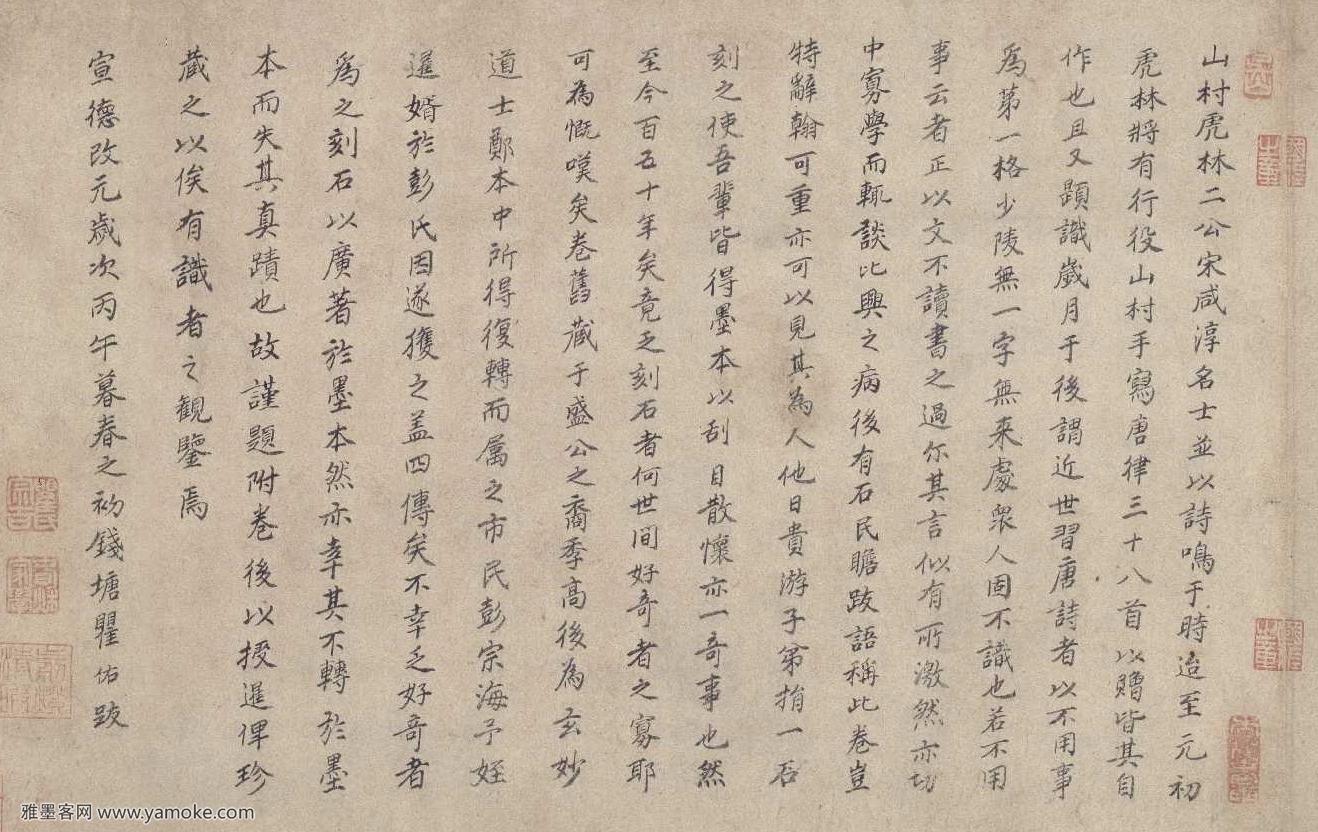 山村虎林二公宋咸淳名士並以詩鳴于時迨至元初
虎林將有行役山村手寫唐律三十八首以贈皆其自
作也且又題識歲月于後謂近世習唐詩者以不用事
為第一格少陵無一字無来處衆人固不識也若不用
事云者正以文不讀書之過尓其言似有所激然亦切
中寡學而輒談比興之病後有石民瞻跋語稱此卷豈
特辭翰可重亦可以見其為人他日貴游子第捐一石
刻之使吾輩皆得墨本以刮目散懷亦一奇事也然
至今百五十年矣竟乏刻石者何世间好奇者之寡耶
可為慨嘆矣卷舊藏于盛公之裔季高後為玄妙
道士鄭本中所得復轉而属之市民彭宗海予姪
暹婿於彭氏因遂獲之盖四傳矣不幸乏好奇者
為之刻石以廣著於墨本然亦幸其不轉於墨
本而失其真蹟也故謹題附卷後以授暹俾珍
藏之以俟有識者之觀鑒焉
宣德改元歲次丙午暮春之初錢塘瞿佑跋
雅墨客网 www.yamoke.com